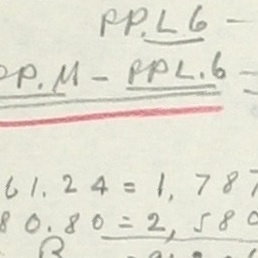 PP.L6 -
PP.M - PPL.6 -
61.24 = 1,787
80.80 = 2,580